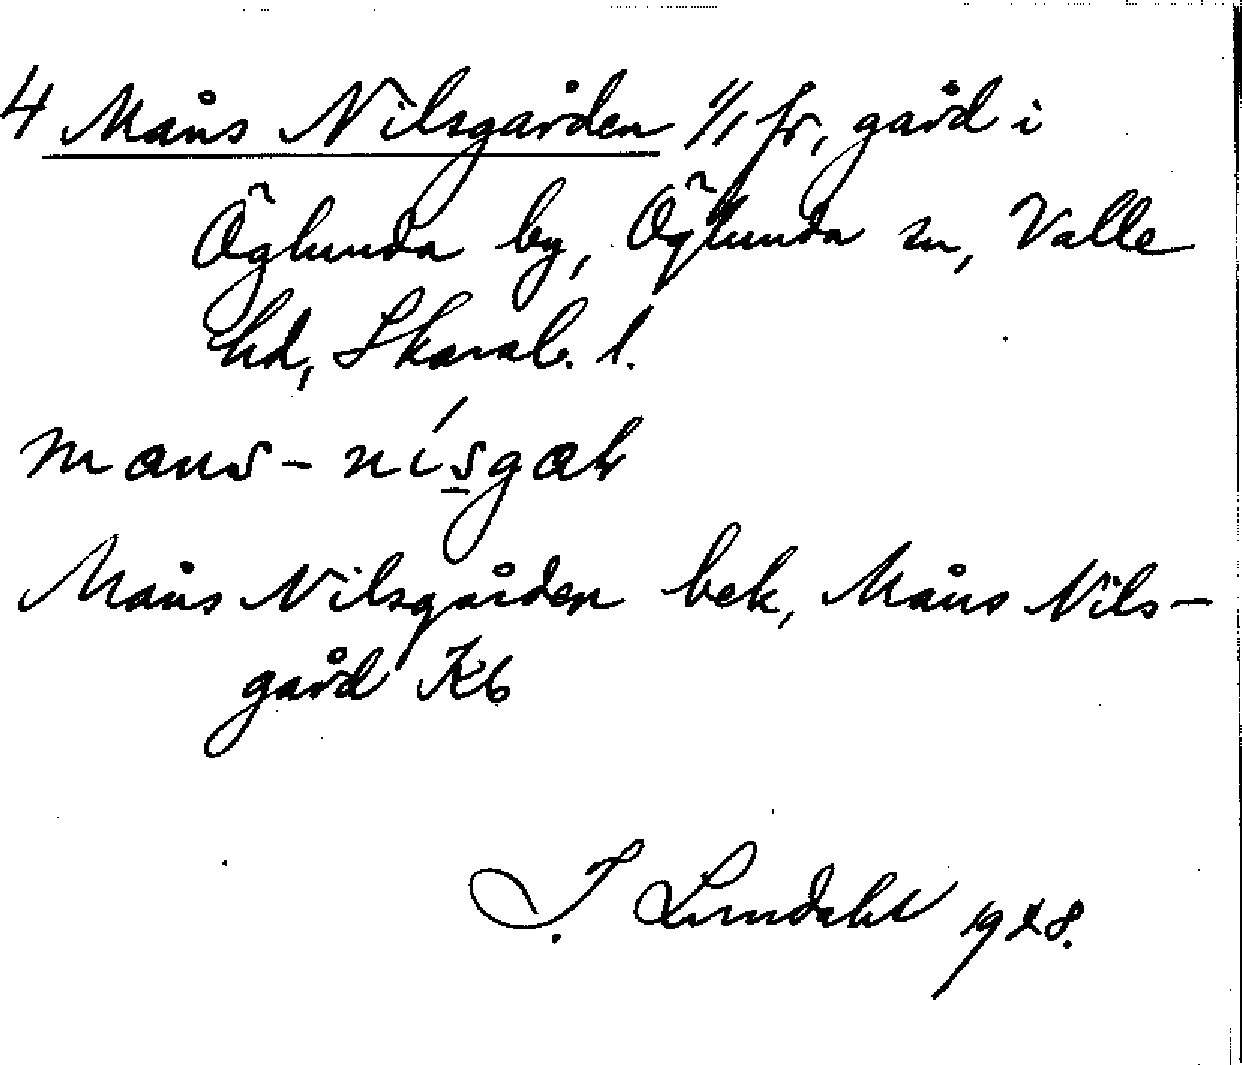 4 Måns Nilsgården 1/1 fr, gård i
Öglunda by, Öglunda sn, Valle
hd, Skarab. l.
Måns Nilsgården bek, Måns Nils-
gård Kb
I. Lundahl 1928.